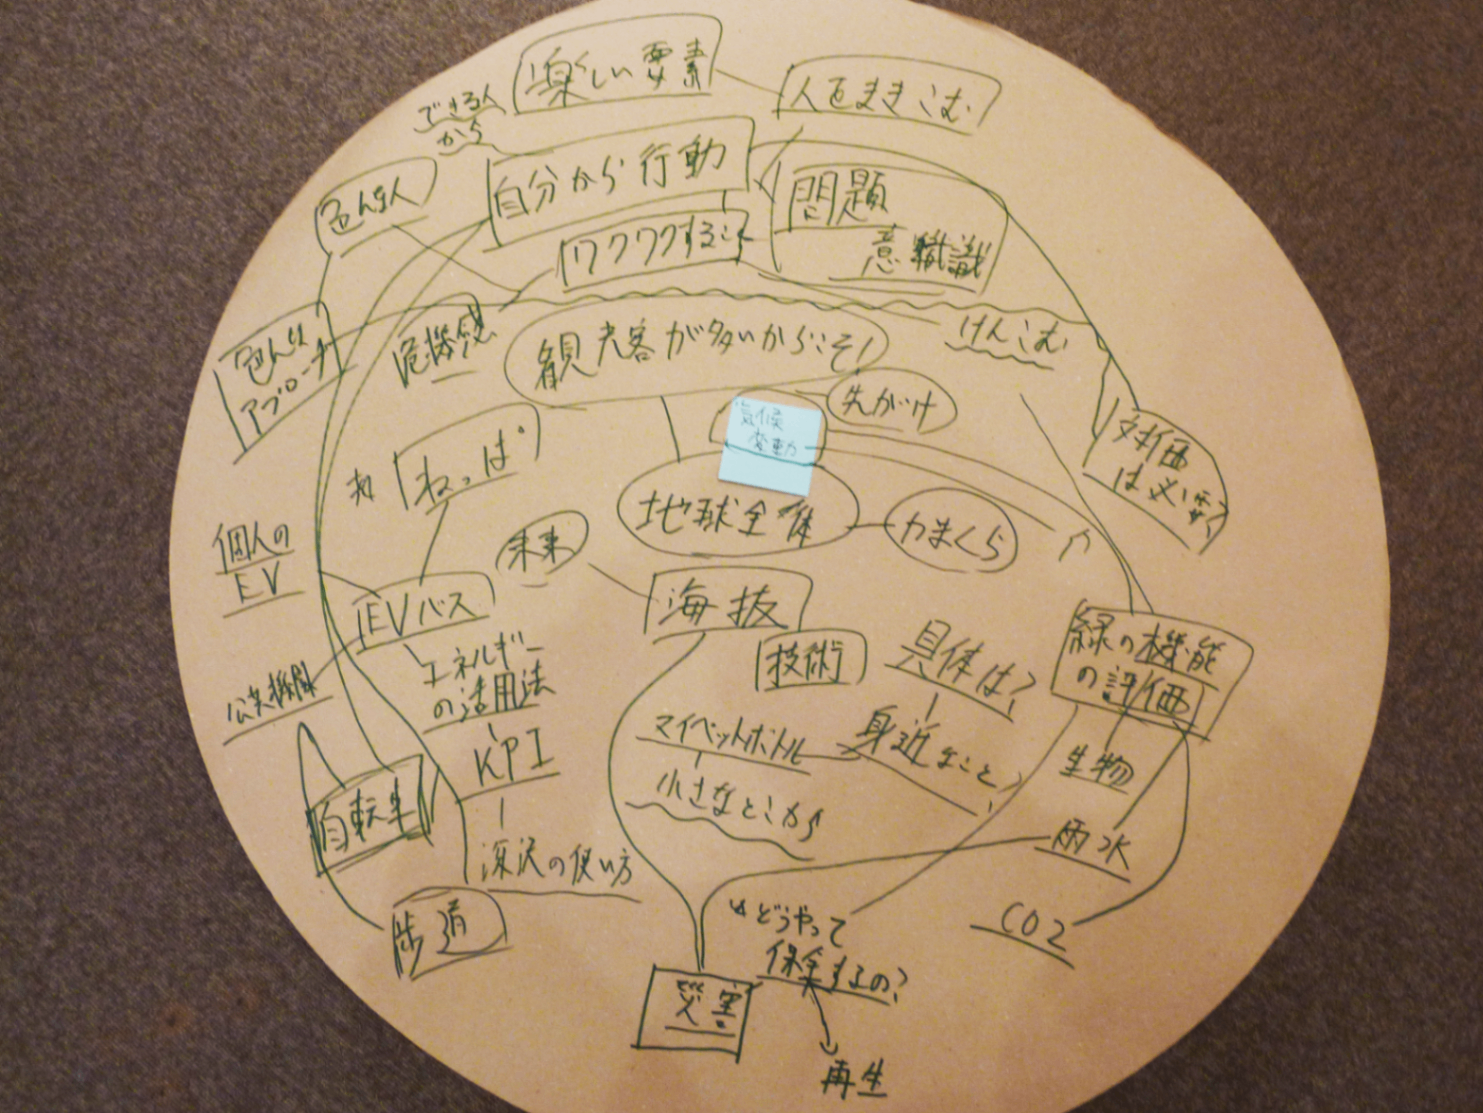 楽しい要素
人をまきこむ
できる人
から
自分から行動
色んな人
問題
意識
ワクワクすること
色んな
アプローチ
危機感
けんこむ
観光客が多いからこそ!
先がけ
気候
変動
対価
は必要
ねっぱ°
地球全体
かまくら
未来
個人の
EV
EVバス
海抜
技術
具体は?
緑の機能
の評価
エネルギー
の活用法
公共機関
マイペットボトル
身近なこと
KPI
生物
小さなとこから
自転車
雨水
深沢の使い方
歩道
CO2
どうやって
保全するの?
災害
再生